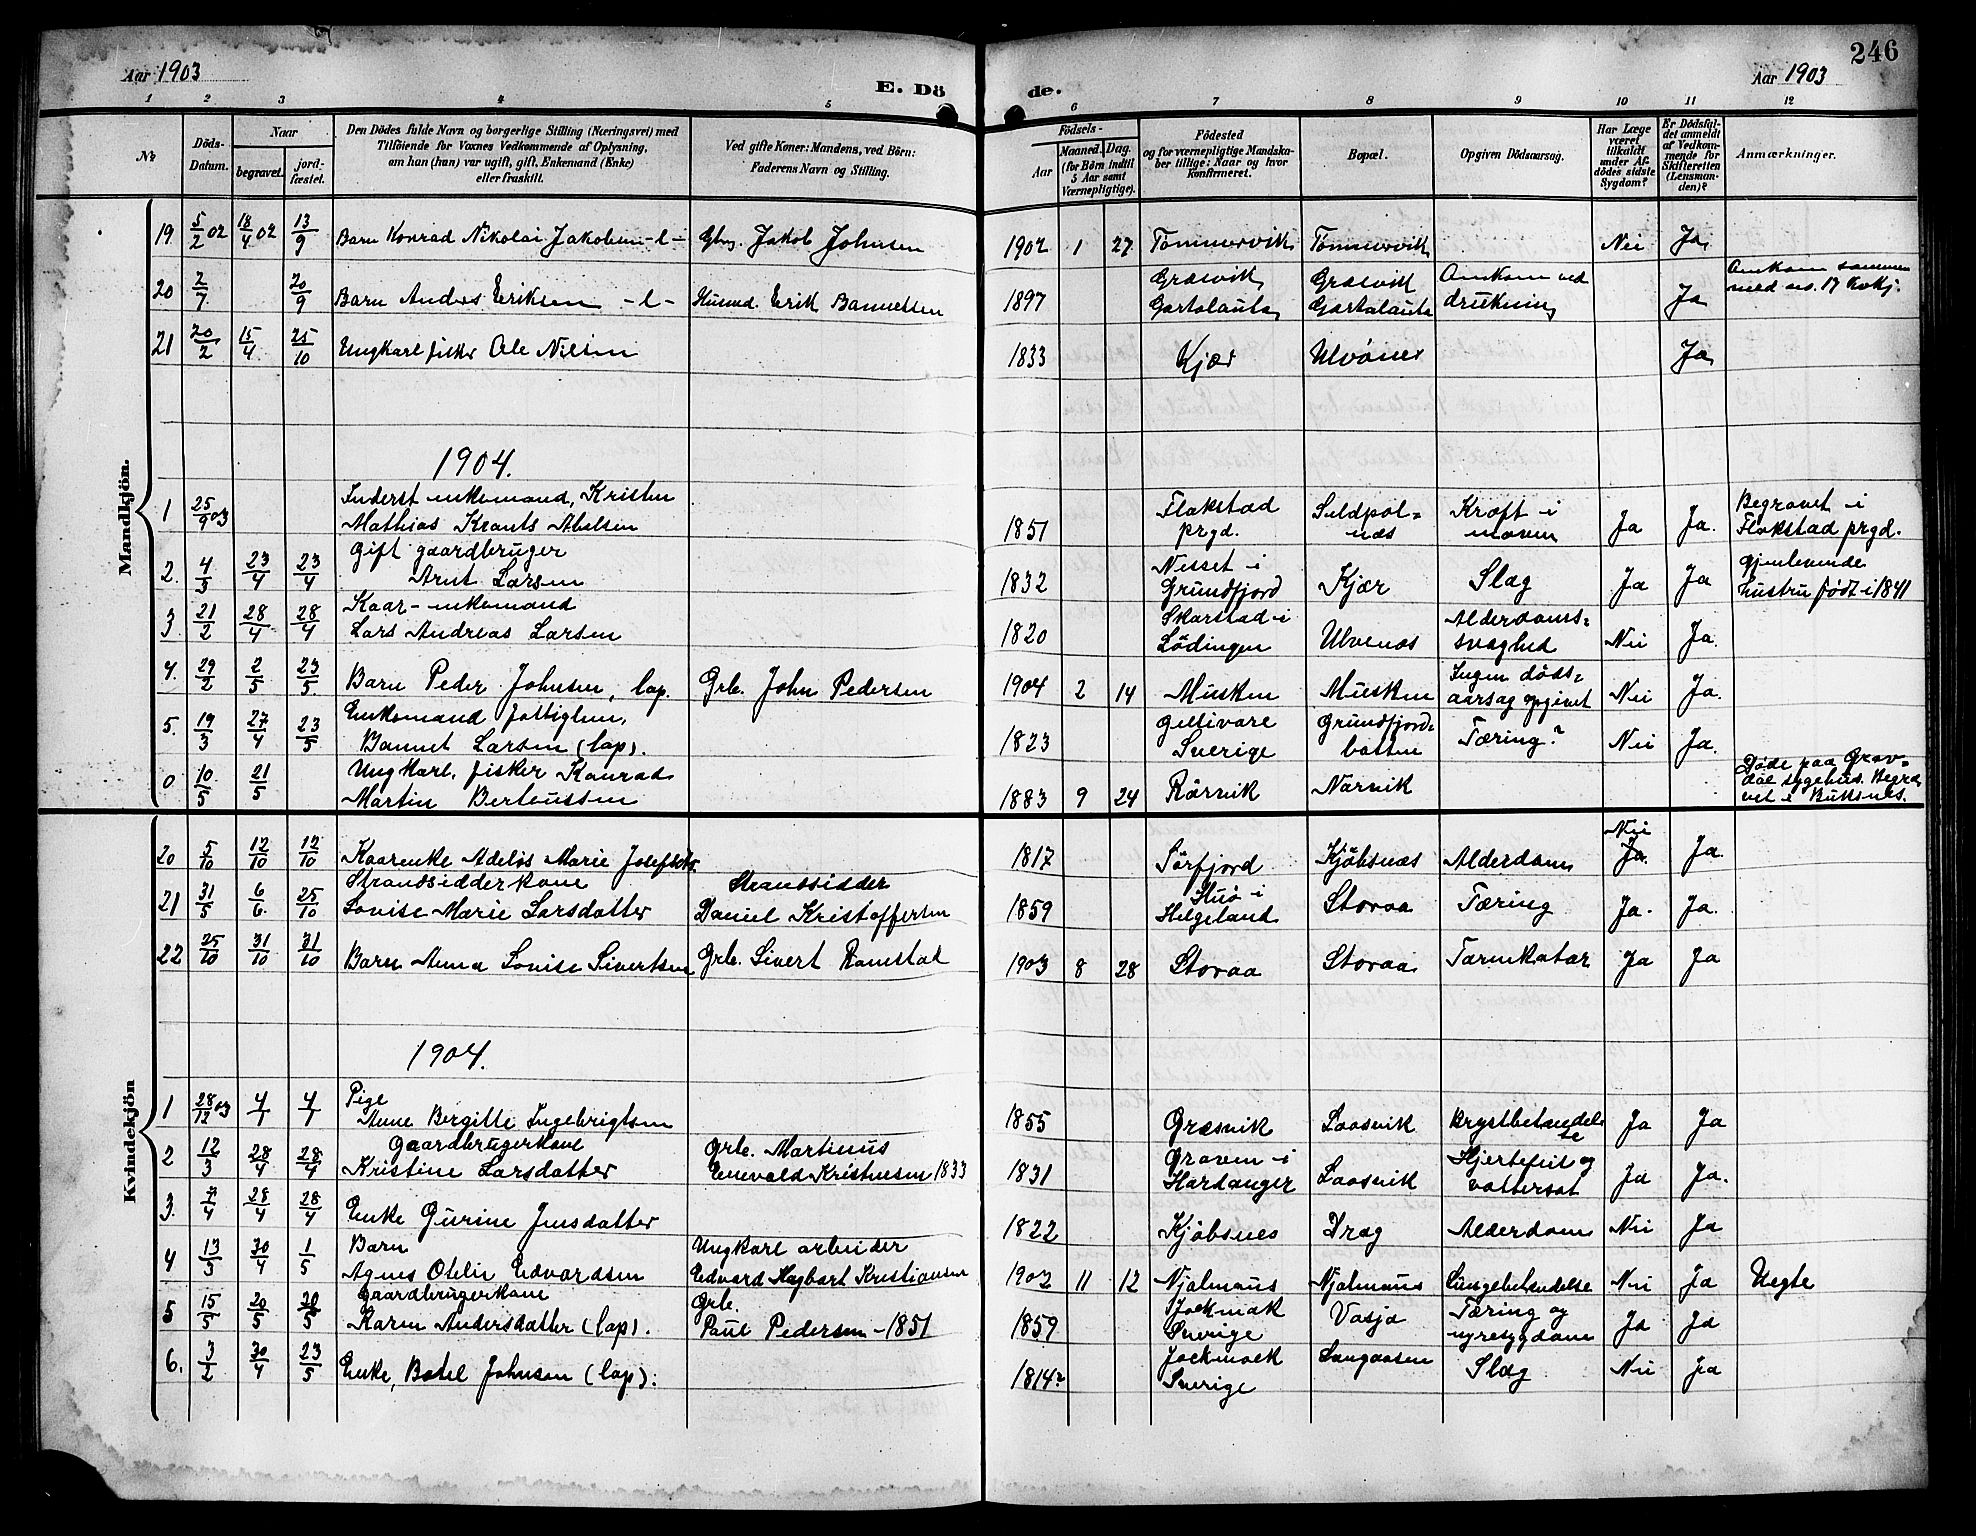 246
Aar 1903
E. Döde.
Aar 1903
1 2 3 4 5 6 7 8 9 10 11 12
No
Döds-Datum.
Naar
begravet.
jordfæstet.
Den Dödes fulde Navn og borgerlige Stilling (Næringsvei) med
Tilföiende for Voxnes Vedkommende af Oplysning,
om han (hun) var ugift, gift, Enkemand (Enke)
eller fraskilt.
Ved gifte Koner: Mandens, ved Börn:
Faderens Navn og Stilling.
Födsels-
Aar
Maaned. Dag.
(for Börn indtil
5 Aar samt
Værnepligtige).
Födested
og for værnepligtige Mandska-
ber tillige: Naar og hvor
konfirmeret.
Bopæl.
Opgiven Dödsaarsag.
Har Læge
været
tilkaldt
under Af-
dödes sidste
Sygdom?
Er Dödsfal-
det anmeldt
af Vedkom-
mende for
Skifteretten
(Lensman-
den)?
Anmærkninger.
Mandkjön.
19 5/2 02 18/4 02 13/9 Barn Konrad Nikolai Jakobsen -l- Gbrg. Jakob Johnsen 1902 1 27 Tømmervik Tømmervik Nei Ja
20 2/7 20/9 Barn Anders Eriksen -l- Husmd. Erik Bannetsen 1897 Græsvik Gartalauta Græsvik Gartalauta Omkom ved drukning Ja Omkom sammen med no. 17 kvkj.
21 20/2 15/4 25/10 Ungkarl fisker Ole Nilsen 1833 Kjær Ulvönes Ja
1904.
1 25/9 03 Inderst enkemand, Kristen Mathias Krants Abelsen 1851 Flakstad prgd. Sildpolnæs Kræft i maven Ja Ja. Begravet i Flakstad prgd.
2. 4/3 23/4 23/4 Gift gaardbruger Arnt Larsen 1832 Nesset i Grundfjord Kjær Slag Ja Ja Gjenlevende hustru født i 1841
3 21/2 28/4 28/4 Kaar-enkemand Lars Andreas Larsen 1820 Skarstad i Lödingen Ulvenæs Alderdoms=svaghed Nei Ja.
4. 29/2 2/5 23/5 Barn Peder Johnsen, lap. Grb. John Pedersen 1904 2 14 Musken Musken Ingen döds=aarsag opgivet Nei Ja.
5. 19/3 27/4 23/5 Enkemand fattiglem, Bannet Larsen (lap). 1823 Gellivare Sverige Grundfjordbotten Tæring? Nei Ja.
0 10/5 21/5 Ungkarl, fisker Konrad Martin Berteussen 1883 9 24 Rörvik Narvik Døde paa Gravdal sygehus. Begravet i Buksnes.
Kvindekjön
20 5/10 12/10 12/10 Kaarenke Adelös Marie Josefsdtr 1817 Sörfjord Kjöbsnæs Alderdom Nei Ja. Ja.
21 31/5 6/6 25/10 Strandsidderkone Lovise Marie Larsdatter Strandsidder Daniel Kristoffersen 1859 Husö i Helgeland Storaa Tæring Ja. Ja.
22 25/10 31/10 31/10 Barn Anna Lovise Sivertsen Grb. Sivert Ramstad 1903 8 28 Storaa Storaa Tarmkatar Ja Ja
1904.
1 28/12 03 4/1 4/1 Pige Anne Bergitte Ingebrigtsen 1855 Græsvik Laasvik Brystbetændelse Ja Ja
2 12/3 28/4 28/4 Gaardbrugerkone Kristine Larsdatter Grb. Martinus Enevald Kristensen 1833 1831 Graven i Hardanger Laasvik Hjertefeil og vattersot Ja Ja.
3. 7/4 28/4 28/4 Enke Gurine Jensdatter 1822 Kjöbsnes Drag Alderdom Nei Ja
4 13/3 30/4 1/5 Barn Agnes Otelie Edvardsen Ungkarl arbeider Edvard Hagbart Kristiansen 1902 11 12 Njalmaus Njalmaus Lungebetændelse Nei Ja Uegte
5 15/5 20/5 20/5 Gaardbrugerkone Karen Andersdatter (lap). Grb. Paul Pedersen - 1851 1859 Jockmok Sverige Vasja Tæring og nyresygdom Ja Ja
6. 3/2 30/4 23/5 Enke, Botel Johnsen (lap). 1814? Jockmock Sverige Langaasen Slag Nei Ja